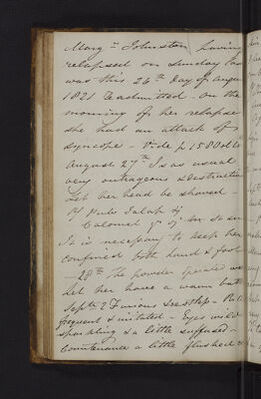 Marg.t Johnston having
relapsed on Sunday last
was this 26th day of August
1821 Readmitted - On the
morning of her relapse
she had an attack of
syncope - Vide p 158
August 27th Is as usual
very outrageous & destructive
Let her head be shaved -
Pulv Jalap
Calomel
It is necessary to keep her
confined both hand & foot
28th The powder operated well
Let her have a warm bath
Septr 2 Furious
frequent & irritated - Eyes wild
sparkling & a little suffused -
Countenance a little flushed &